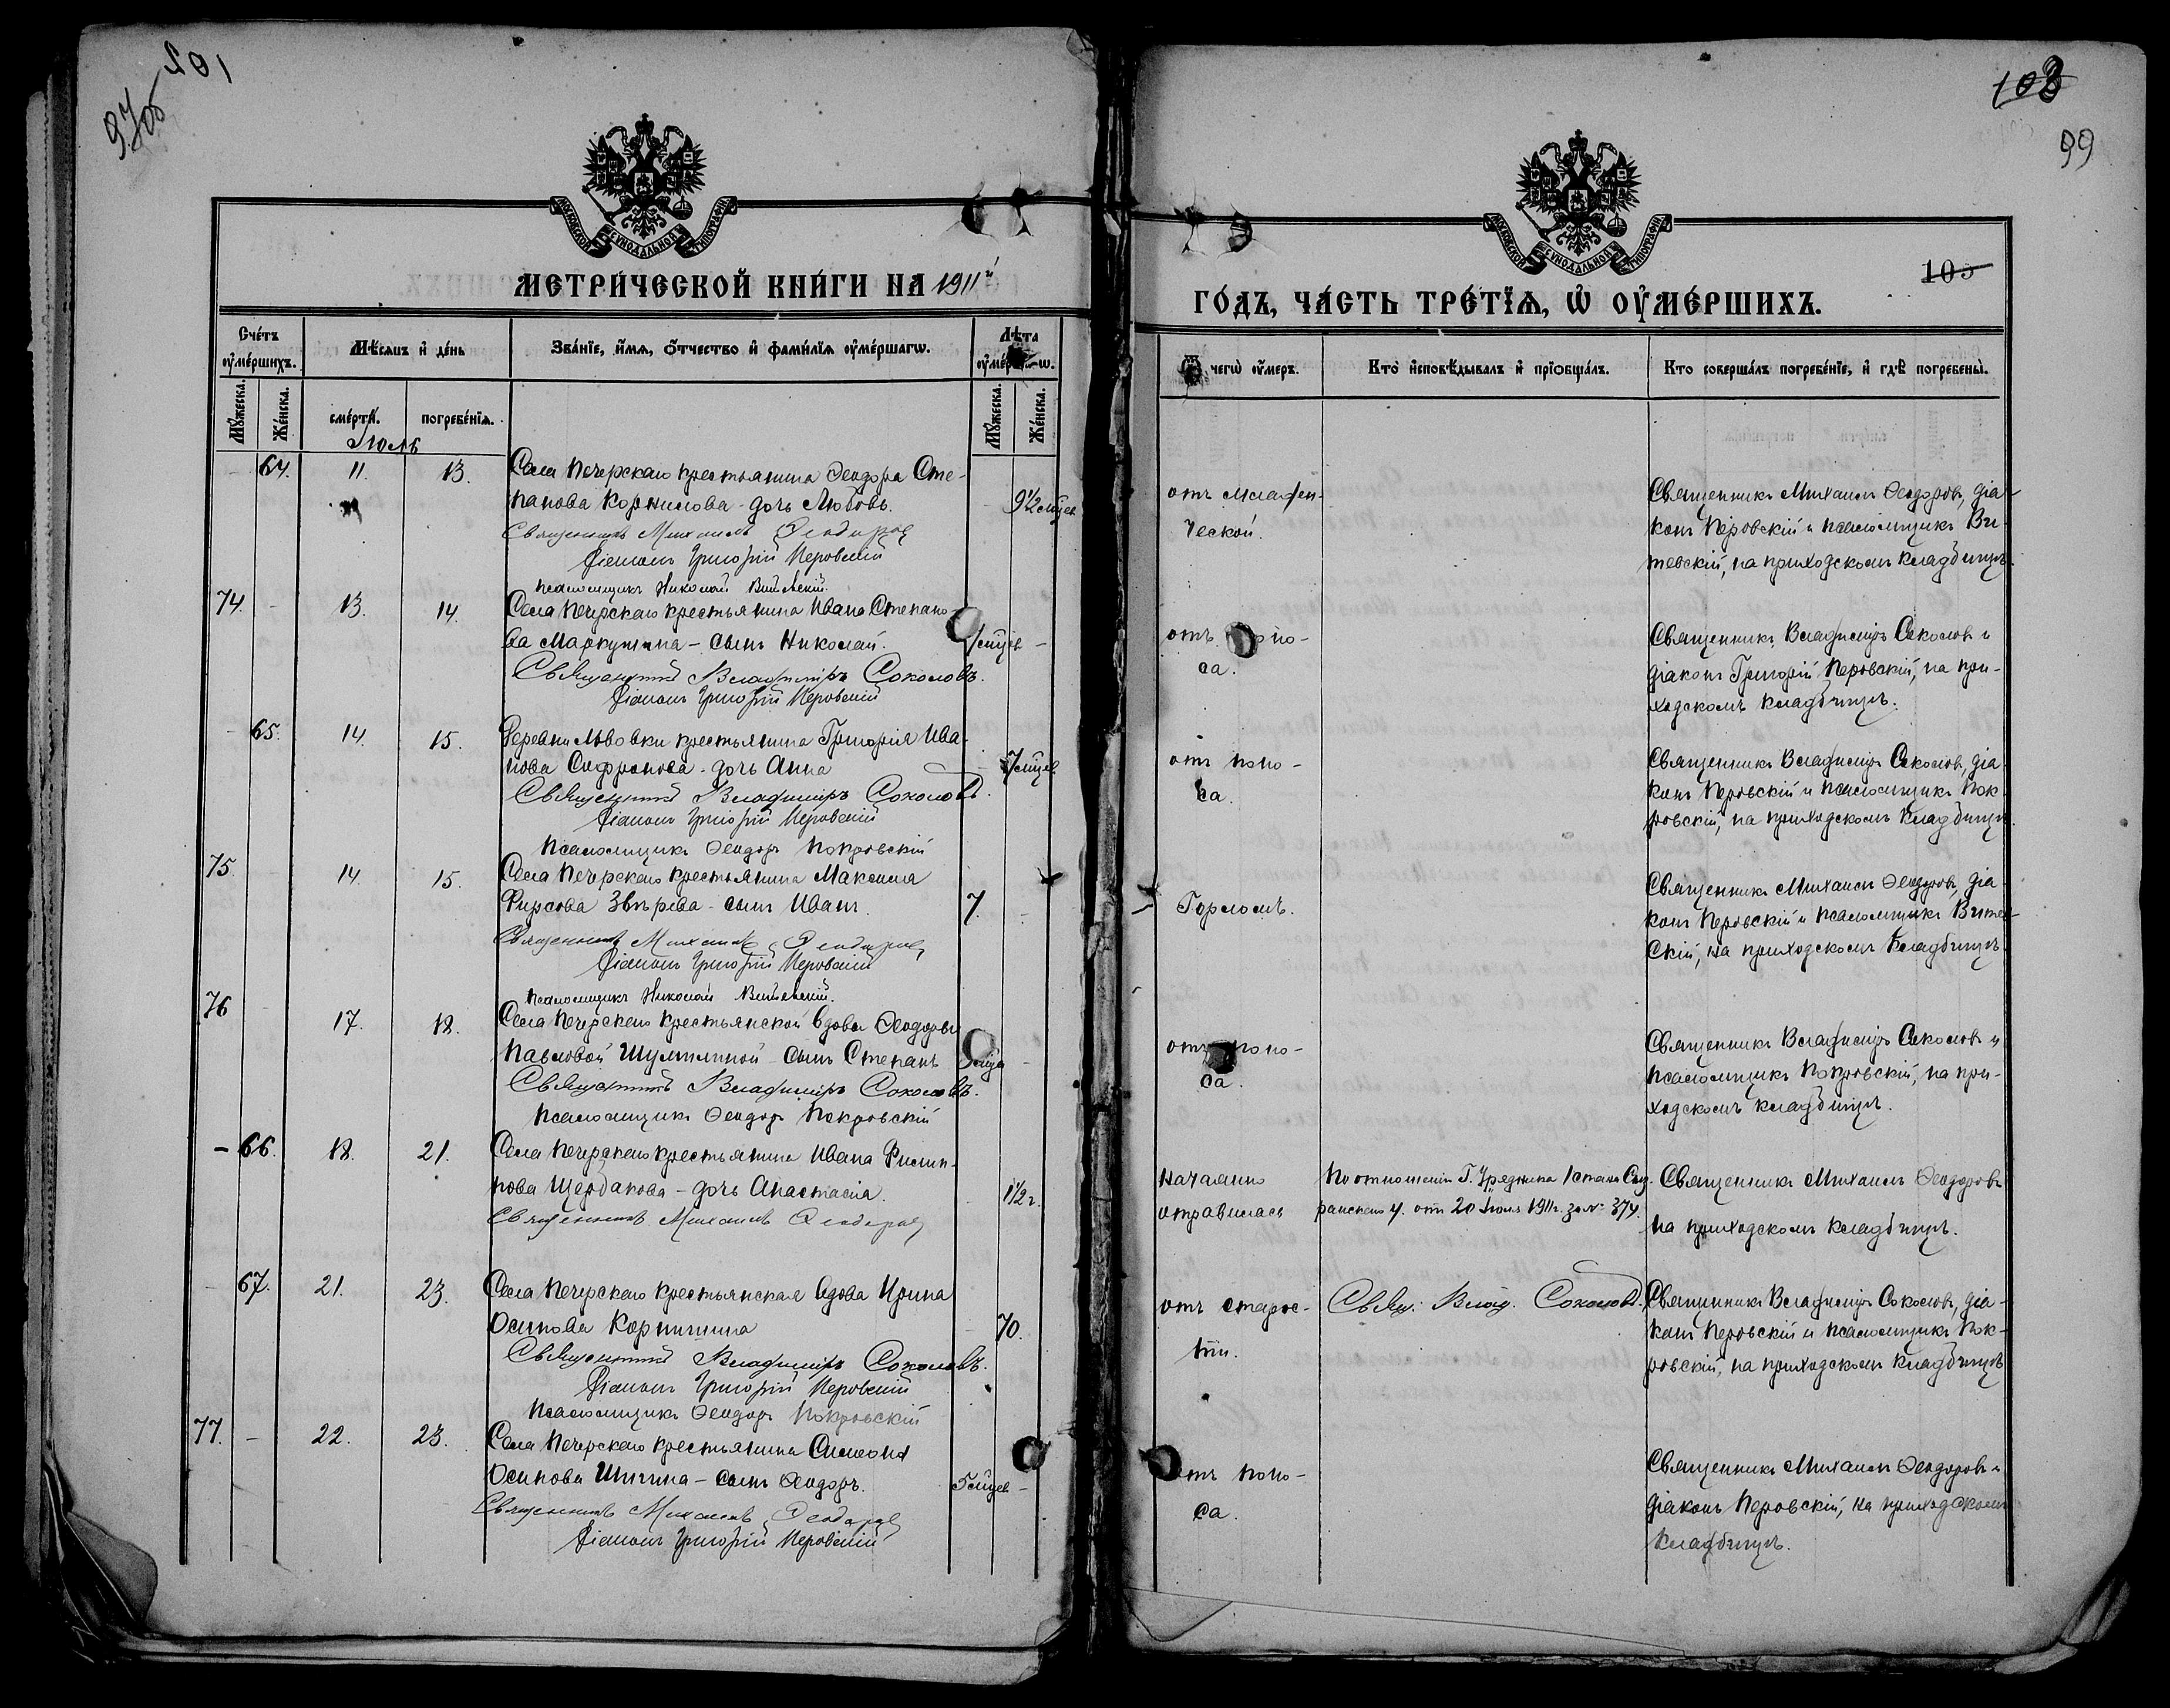 102
97об
103
99
105
МОСКОВСКОЙ СУНОДАЛЬНОЙ ТИПОГРАФІИ
МОСКОВСКОЙ СУНОДАЛЬНОЙ ТИПОГРАФІИ
МЕТРИ́ЧЕСКОЙ КНИ́ГИ НА 1911й
ГО́ДЪ, ЧА́СТЬ ТРЕ́ТІѦ, Ѡ҆ ОУ҆МЕ́РШИХЪ.
Сче́тъ оу҆ме́ршихъ.
Мѣ́сѧцъ и҆ де́нь
Зва́нїе, и҆́мѧ, ѻ҆́тчество и҆ фами́лїѧ оу҆ме́ршагѡ.
Лѣ́та
Мꙋ́жеска.
Же́нска.
сме́рти.
погребе́нїѧ.
Мꙋ́жеска.
Же́нска.
чегѡ̀ оу҆́меръ.
Кто̀ и҆сповѣ́дывалъ и҆ прїѡбща́лъ.
Кто соверша́лъ погребе́нїе, и҆ гдѣ̀ погребены̀.
Іюль
64. 11. 13. Села Печерскаго крестьянина Ѳеодора Сте-
панова Корнилова - дочь Любовь. 9½ мѣсяц.
Священникъ Михаилъ Ѳеодоровъ
Діаконъ Григорій Перовскій
Псаломщикъ Николай Витевскій.
отъ младен-
ческой.
Священникъ Михаилъ Ѳеодоровъ, діа-
конъ Перовскій и псаломщикъ Ви-
тевскій, на приходскомъ кладбищѣ.
74. - 13. 14. Села Печерскаго крестьянина Ивана Степано-
ва Маркушина - сынъ Николай.
Священникъ Владиміръ Соколовъ.
Діаконъ Григорій Перовскій
отъ поно-
са.
Священникъ Владиміръ Соколовъ и
діаконъ Григорій Перовскій, на при-
ходскомъ кладбищѣ.
- 65. 14. 15. Деревни Львовки крестьянина Григорія Ива-
нова Сафронова - дочь Анна
Священникъ Владиміръ Соколовъ.
Діаконъ Григорій Перовскій
Псаломщикъ Ѳеодоръ Покровскій
отъ поно-
са.
Священникъ Владиміръ Соколовъ, діа-
конъ Перовскій и псаломщикъ Пок-
ровскій, на приходскомъ кладбищѣ.
75 - 14. 15. Села Печерскаго крестьянина Максима
Фирсова Звѣрева - сынъ Иванъ. 7. -
Священникъ Михаилъ Ѳеодоровъ
Діаконъ Григорій Перовскій
Псаломщикъ Николай Витевскій.
Горломъ.
Священникъ Михаилъ Ѳеодоровъ, діа-
конъ Перовскій и псаломщикъ Витев-
скій, на приходскомъ кладбищѣ.
76 - 17. 18. Села Печерскаго крестьянской вдовы Ѳеодоры
Павловой - сынъ Степанъ
Священникъ Владиміръ Соколовъ.
Псаломщикъ Ѳеодоръ Покровскій
отъ поно-
са.
Священникъ Владиміръ Соколовъ и
псаломщикъ Покровскій, на при-
ходскомъ кладбищѣ.
- 66. 18. 21. Села Печерскаго крестьянина Ивана Филип-
пова Щербакова - дочь Анастасія. 1½ г.
Священникъ Михаилъ Ѳеодоровъ
нечаянно
отравилась
По отношенію Г. Урядника 1 стана Сыз-
ранскаго у. отъ 20 Іюля 1911 г. за № 374.
Священникъ Михаилъ Ѳеодоровъ
на приходскомъ кладбищѣ.
- 67. 21. 23. Села Печерскаго крестьянская вдова Ирина
Осипова 70.
Священникъ Владиміръ Соколовъ.
Діаконъ Григорій Перовскій
Псаломщикъ Ѳеодоръ Покровскій
отъ старос-
ти.
Свящ. Влад. Соколовъ.
Священникъ Владиміръ Соколовъ, діа-
конъ Перовскій и псаломщикъ Пок-
ровскій, на приходскомъ кладбищѣ
77. - 22. 23. Села Печерскаго крестьянина Симеона
Осипова Шигина - сынъ Ѳеодоръ. 5 мѣсяц. -
Священникъ Михаилъ Ѳеодоровъ
Діаконъ Григорій Перовскій
отъ поно-
са.
Священникъ Михаилъ Ѳеодоровъ и
діаконъ Перовскій, на приходскомъ
кладбищѣ.